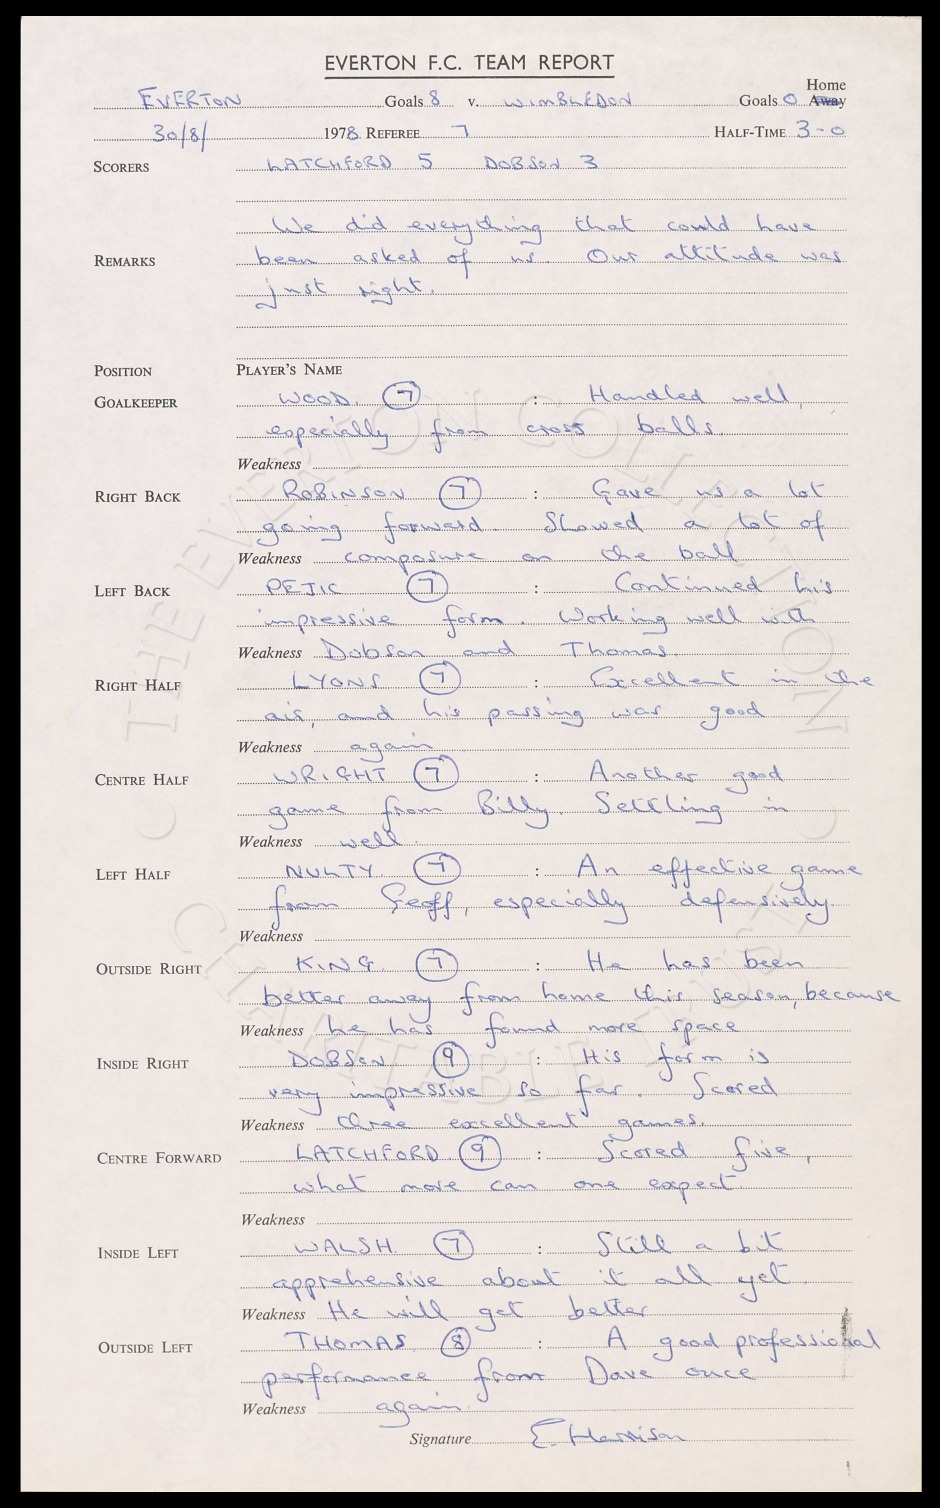 EVERTON F.C. TEAM REPORT
Home
EVERTON Goals 8 v. WIMBLEDON Goals 0 Away
30/8/ 1978 REFEREE 7 HALF-TIME 3-0
SCORERS LATCHFORD 5 DOBSON 3
We did everything that could have
REMARKS been asked of us. Our attitude was
just right.
POSITION PLAYER'S NAME
GOALKEEPER WOOD. 7 : Handled well,
especially from cross balls.
Weakness
RIGHT BACK ROBINSON 7 : Gave us a lot
going forward. Showed a lot of
Weakness composure on the ball
LEFT BACK PEJIC 7 : Continued his
impressive form. Working well with
Weakness Dobson and Thomas.
RIGHT HALF LYONS 7 : Excellent in the
air, and his passing was good
Weakness again
CENTRE HALF WRIGHT 7 : Another good
game from Billy. Settling in
Weakness well.
LEFT HALF NULTY. 7 : An effective game
from Geoff, especially defensively.
Weakness
OUTSIDE RIGHT KING. 7 : He has been
better away from home this season, because
Weakness he has found more space
INSIDE RIGHT DOBSON 9 : His form is
very impressive so far. Scored
Weakness three excellent games.
CENTRE FORWARD LATCHFORD. 9 : Scored five,
what more can one expect.
Weakness
INSIDE LEFT WALSH. 7 : Still a bit
apprehensive about it all yet.
Weakness He will get better
OUTSIDE LEFT THOMAS. 8 : A good professional
performance from Dave once
Weakness again.
Signature E. Harrison
THE EVERTON COLLECTION
CHARITABLE TRUST